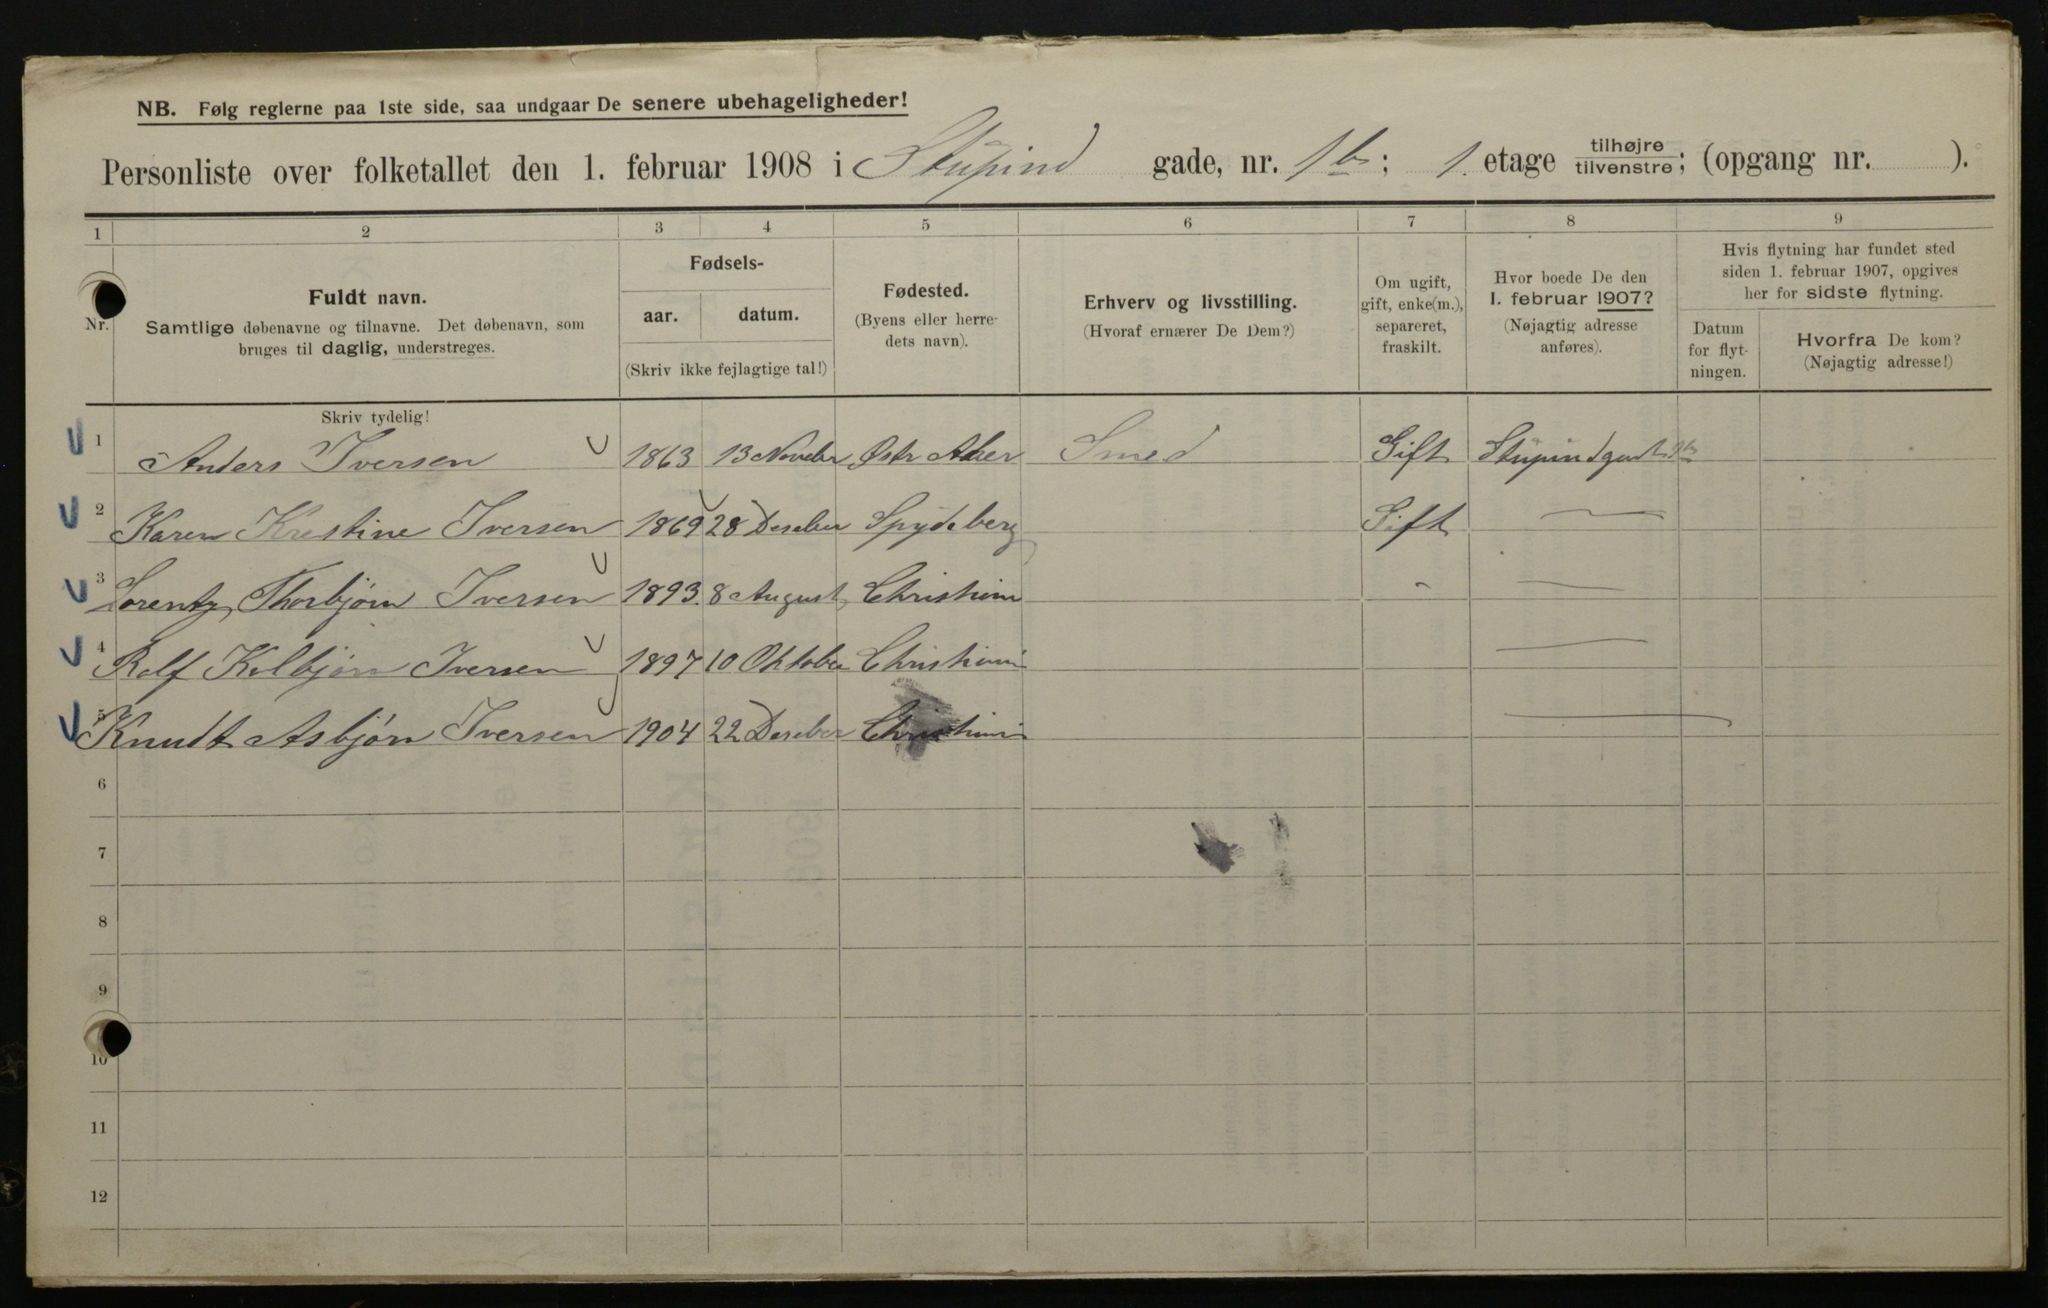 NB. Følg reglerne paa 1ste side, saa undgaar De senere ubehageligheder!
Personliste over folketallet den 1. februar 1908 i Stupind gade, nr. 1b; 1. etage tilhøjre/tilvenstre; (opgang nr. ).
1 2 3 4 5 6 7 8 9
Nr.
Fuldt navn.
Samtlige døbenavne og tilnavne. Det døbenavn, som
bruges til daglig, understreges.
Fødsels-
aar. datum.
(Skriv ikke fejlagtige tal!)
Fødested.
(Byens eller herre-
dets navn).
Erhverv og livsstilling.
(Hvoraf ernærer De Dem?)
Om ugift,
gift, enke(m.),
separeret,
fraskilt.
Hvor boede De den
1. februar 1907?
(Nøjagtig adresse
anføres).
Hvis flytning har fundet sted
siden 1. februar 1907, opgives
her for sidste flytning.
Datum
for flyt-
ningen.
Hvorfra De kom?
(Nøjagtig adresse!)
Skriv tydelig!
1 Anders Iversen 1863 13 November Østr Aker Smed Gift Stupindgad 1b
2 Karen Krestine Iversen 1869 28 Deseber Spydeberg Gift —
3 Lorentz Thorbjørn Iversen 1893. 8 August Christiania - —
4 Rolf Kolbjørn Iversen 1897 10 Oktober Christiania —
5 Knudt Asbjørn Iversen 1904 22 Deseber Christiania —
6
7
8
9
10
11
12